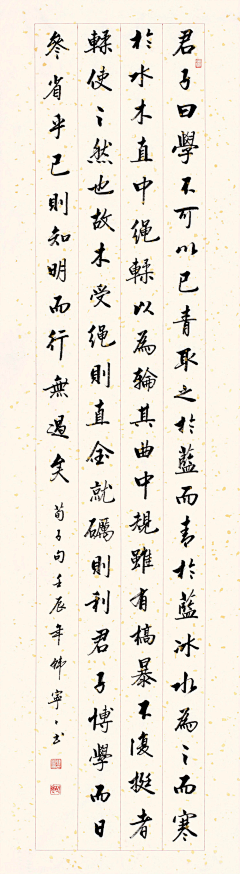 君子曰學不可以已青取之於藍而青於藍冰水為之而寒
於水木直中繩輮以為輪其曲中規雖有槁暴不復挺者
輮使之然也故木受繩則直金就礪則利君子博學而日
參省乎己則知明而行無過矣 荀子句壬辰年寧寧书